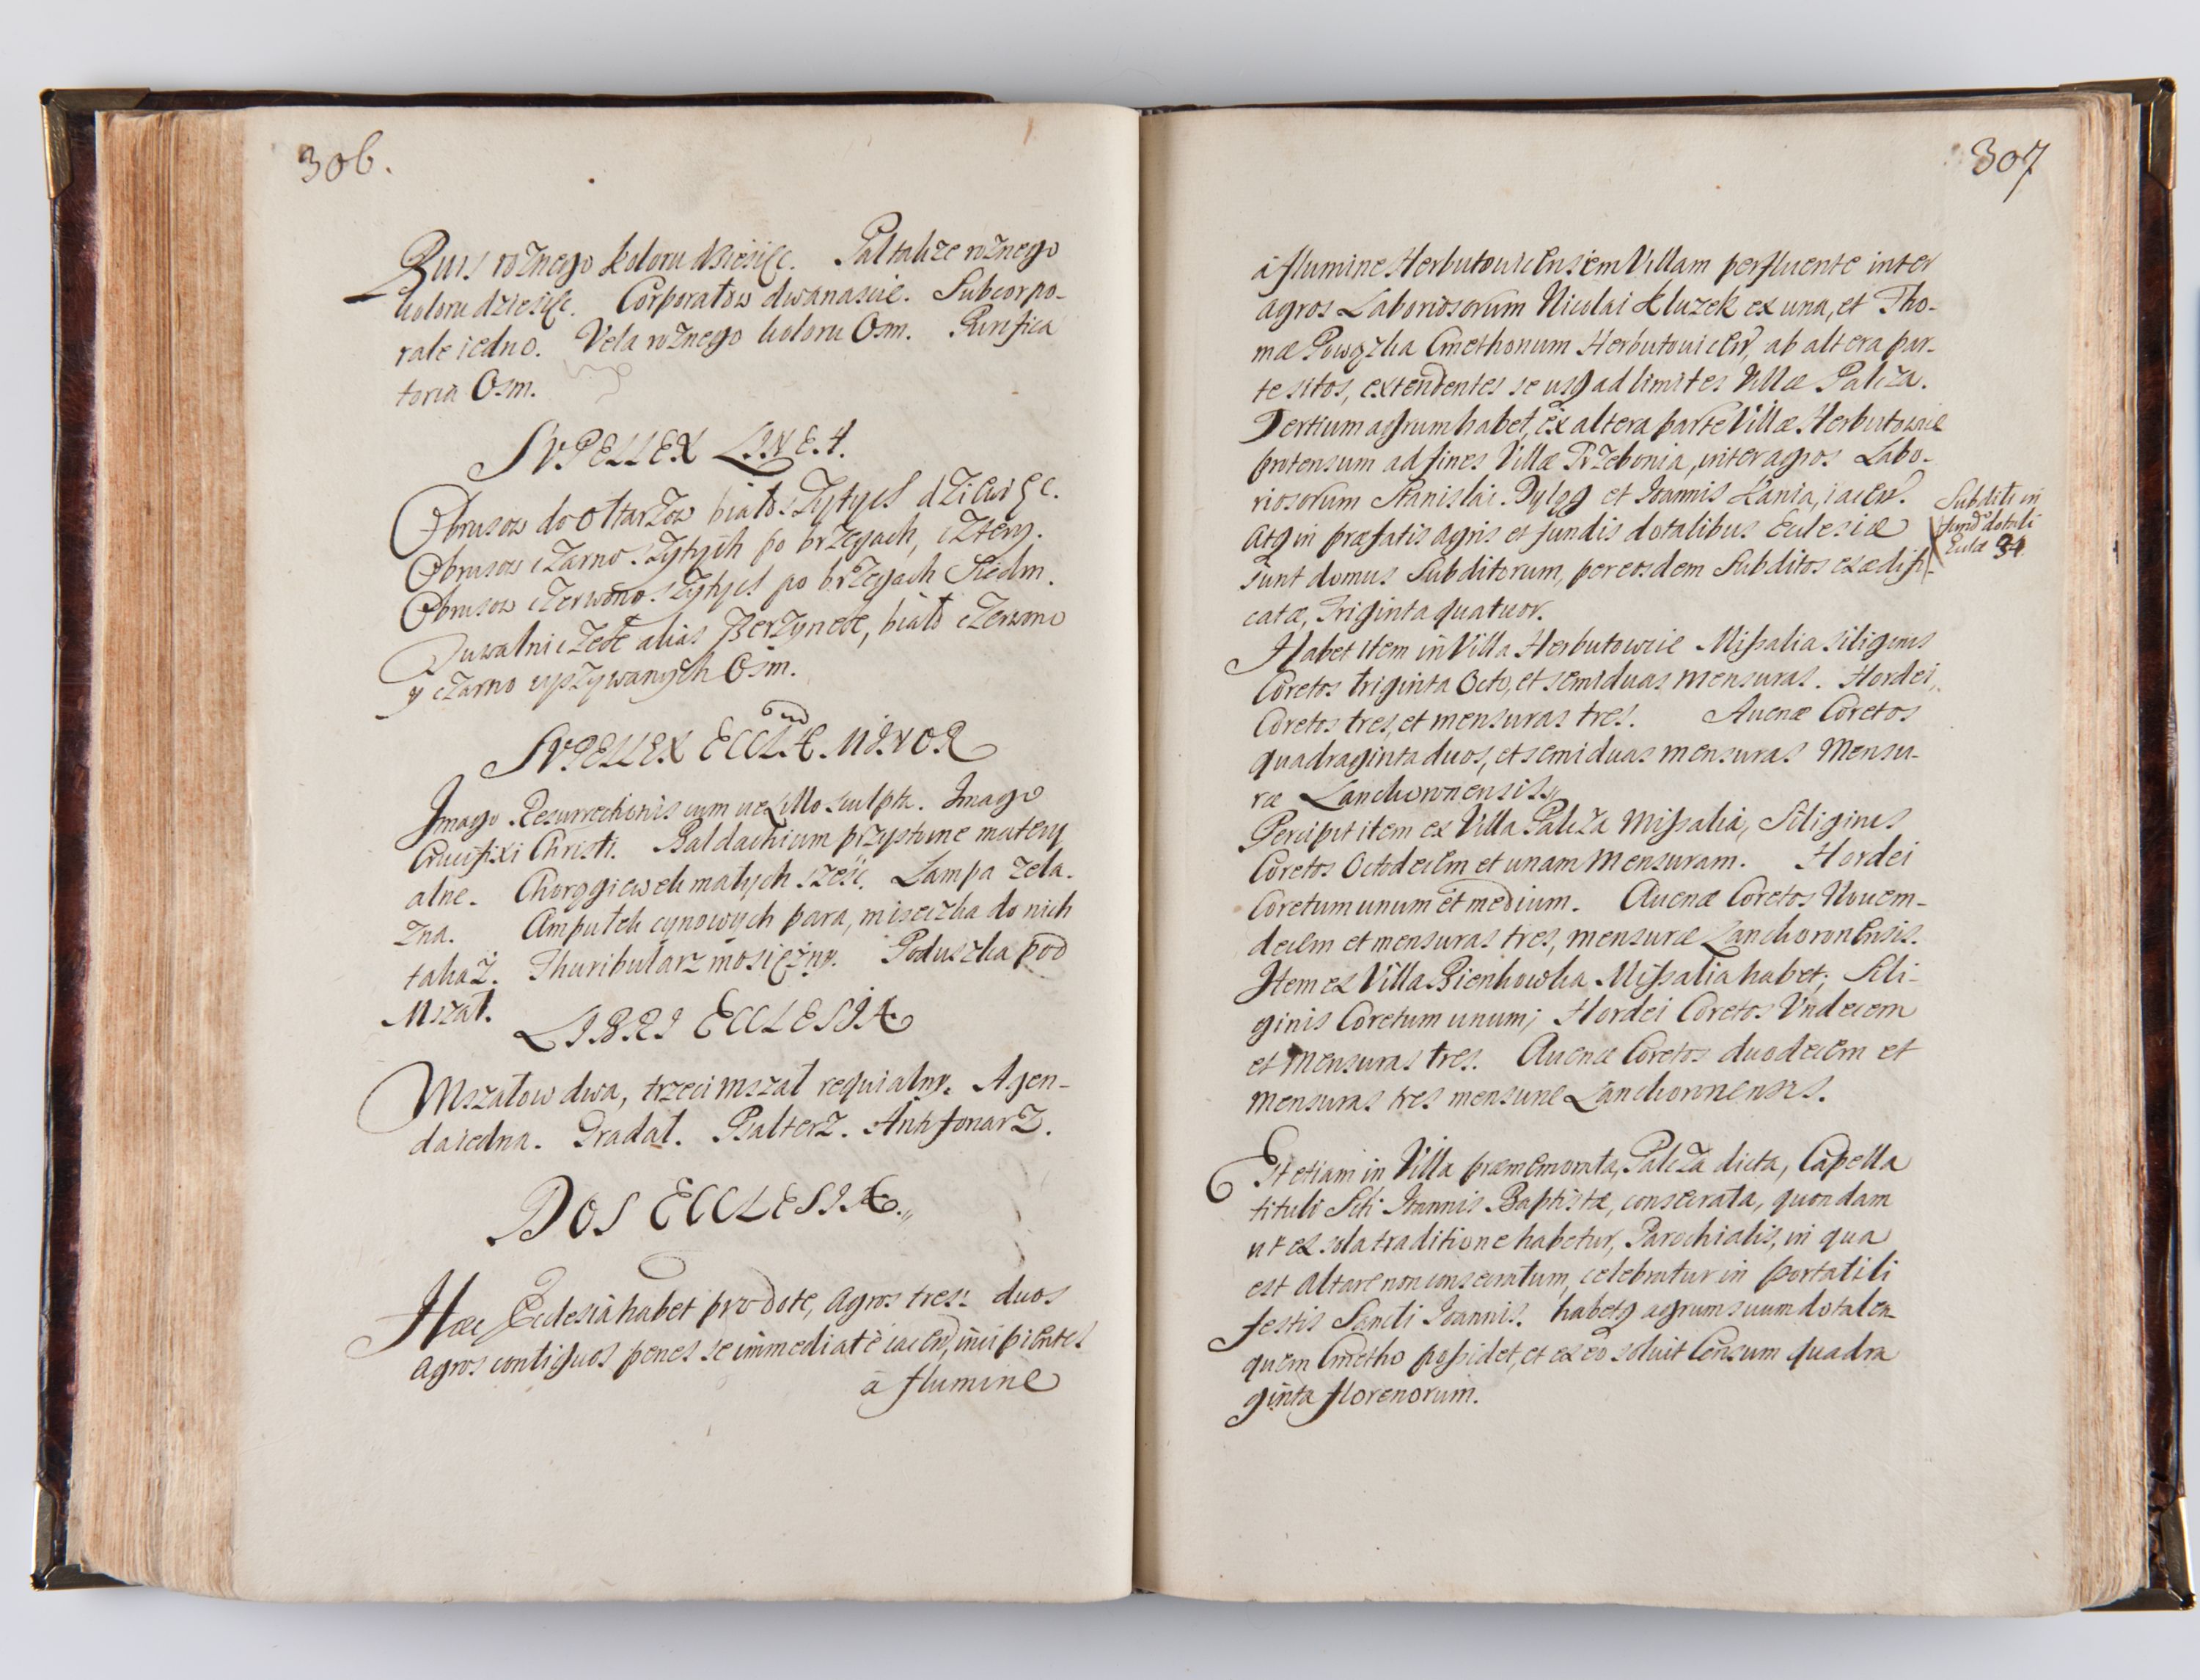 306.
Burs rożnego koloru dziesięc. Paltalize rożnego
koloru dziesięc. Corporałow dwanascie. Subcorpo-
rale iedno. Vela rożnego koloru Osm. Purifica
toria Osm.
SUPELLEX LINEA.
Obrusow do ołtarzow biało szytych dziewięc.
Obrusow czarno szytych po brzegach, cztery.
Obrusow czerwono szytych po brzegach Siedm.
Tuwalniczek alias Berzynek, biało czerwono
y czarno wyszywanych Osm.
SUPELLEX ECCLÆ MINOR
Imago Resurrectionis cum uexillo sculpta. Imago
Crucifixi Christi. Baldachium przystoine matery
alne. Chorągiewek małych sześć. Lampa żela.
zna. Ampułek cynowych para, miseczka do nich
takaż. Thuribularz mosiężny. Poduszka pod
Mszał.
LIBRI ECCLESIÆ
Mszałow dwa, trzeci mszał requialny. Agen-
da iedna. Gradał. Psałterz. Antifonarz.
DOS ECCLESIÆ.
Hæc Ecclesia habet pro dote, agros tres: duos
agros contiguos penes se immediatè iacen, incipientes
à flumine
307
à flumine Herbutouicensem Villam perfluente inter
agros Laboriosorum Nicolai Kluzek ex una, et Tho-
mæ Powązka Cmethonum Herbutouicen, ab altera par-
te sitos, extendentes se usq ad limites Villæ Palcza.
Tertium agrum habet, ex altera parte Villæ Herbutowice
protensum ad fines Villæ Trzebonia, inter agros Labo-
riosorum Stanislai Dyląg et Ioannis Kania, iacen.
Atq in præfatis agris et fundis dotalibus Ecclesiæ
sunt domus Subditorum, per eosdem Subditos exædifi-
catæ, Triginta quatuor.
Subditi in
fundo dotali
Eccle 34.
Habet item in Villa Herbutowice Missalia siliginis
Coretos triginta Octo, et semiduas mensuras. Hordei,
Coretos tres, et mensuras tres. Auenæ Coretos
quadraginta duos, et semiduas mensuras Mensu-
ræ Lanchoronensis,
Percipit item ex Villa Palcza Missalia, Siliginis
Coretos Octodecim et unam Mensuram. Hordei
Coretum unum et medium. Auenæ Coretos Nouem-
decim et mensuras tres, mensuræ Lanchoronensis.
Item ex Villa Bienkowka Missalia habet; Sili-
ginis Coretum unum; Hordei Coretos Vndecem
et mensuras tres. Auenæ Coretos duodecim et
mensuras tres mensuræ Lanchoronensis.
Est etiam in Villa præmemorata, Palcza dicta, Capella
tituli Scti Ioannis Baptistæ, consecrata, quondam
ut ex sola traditione habetur, Parochialis, in qua
est altare non consecratum, celebratur in portatili
festis Sancti Ioannis. habetq agrum suum dotalem
quem Cmetho possidet, et ex eo soluit Censum quadra
ginta florenorum.